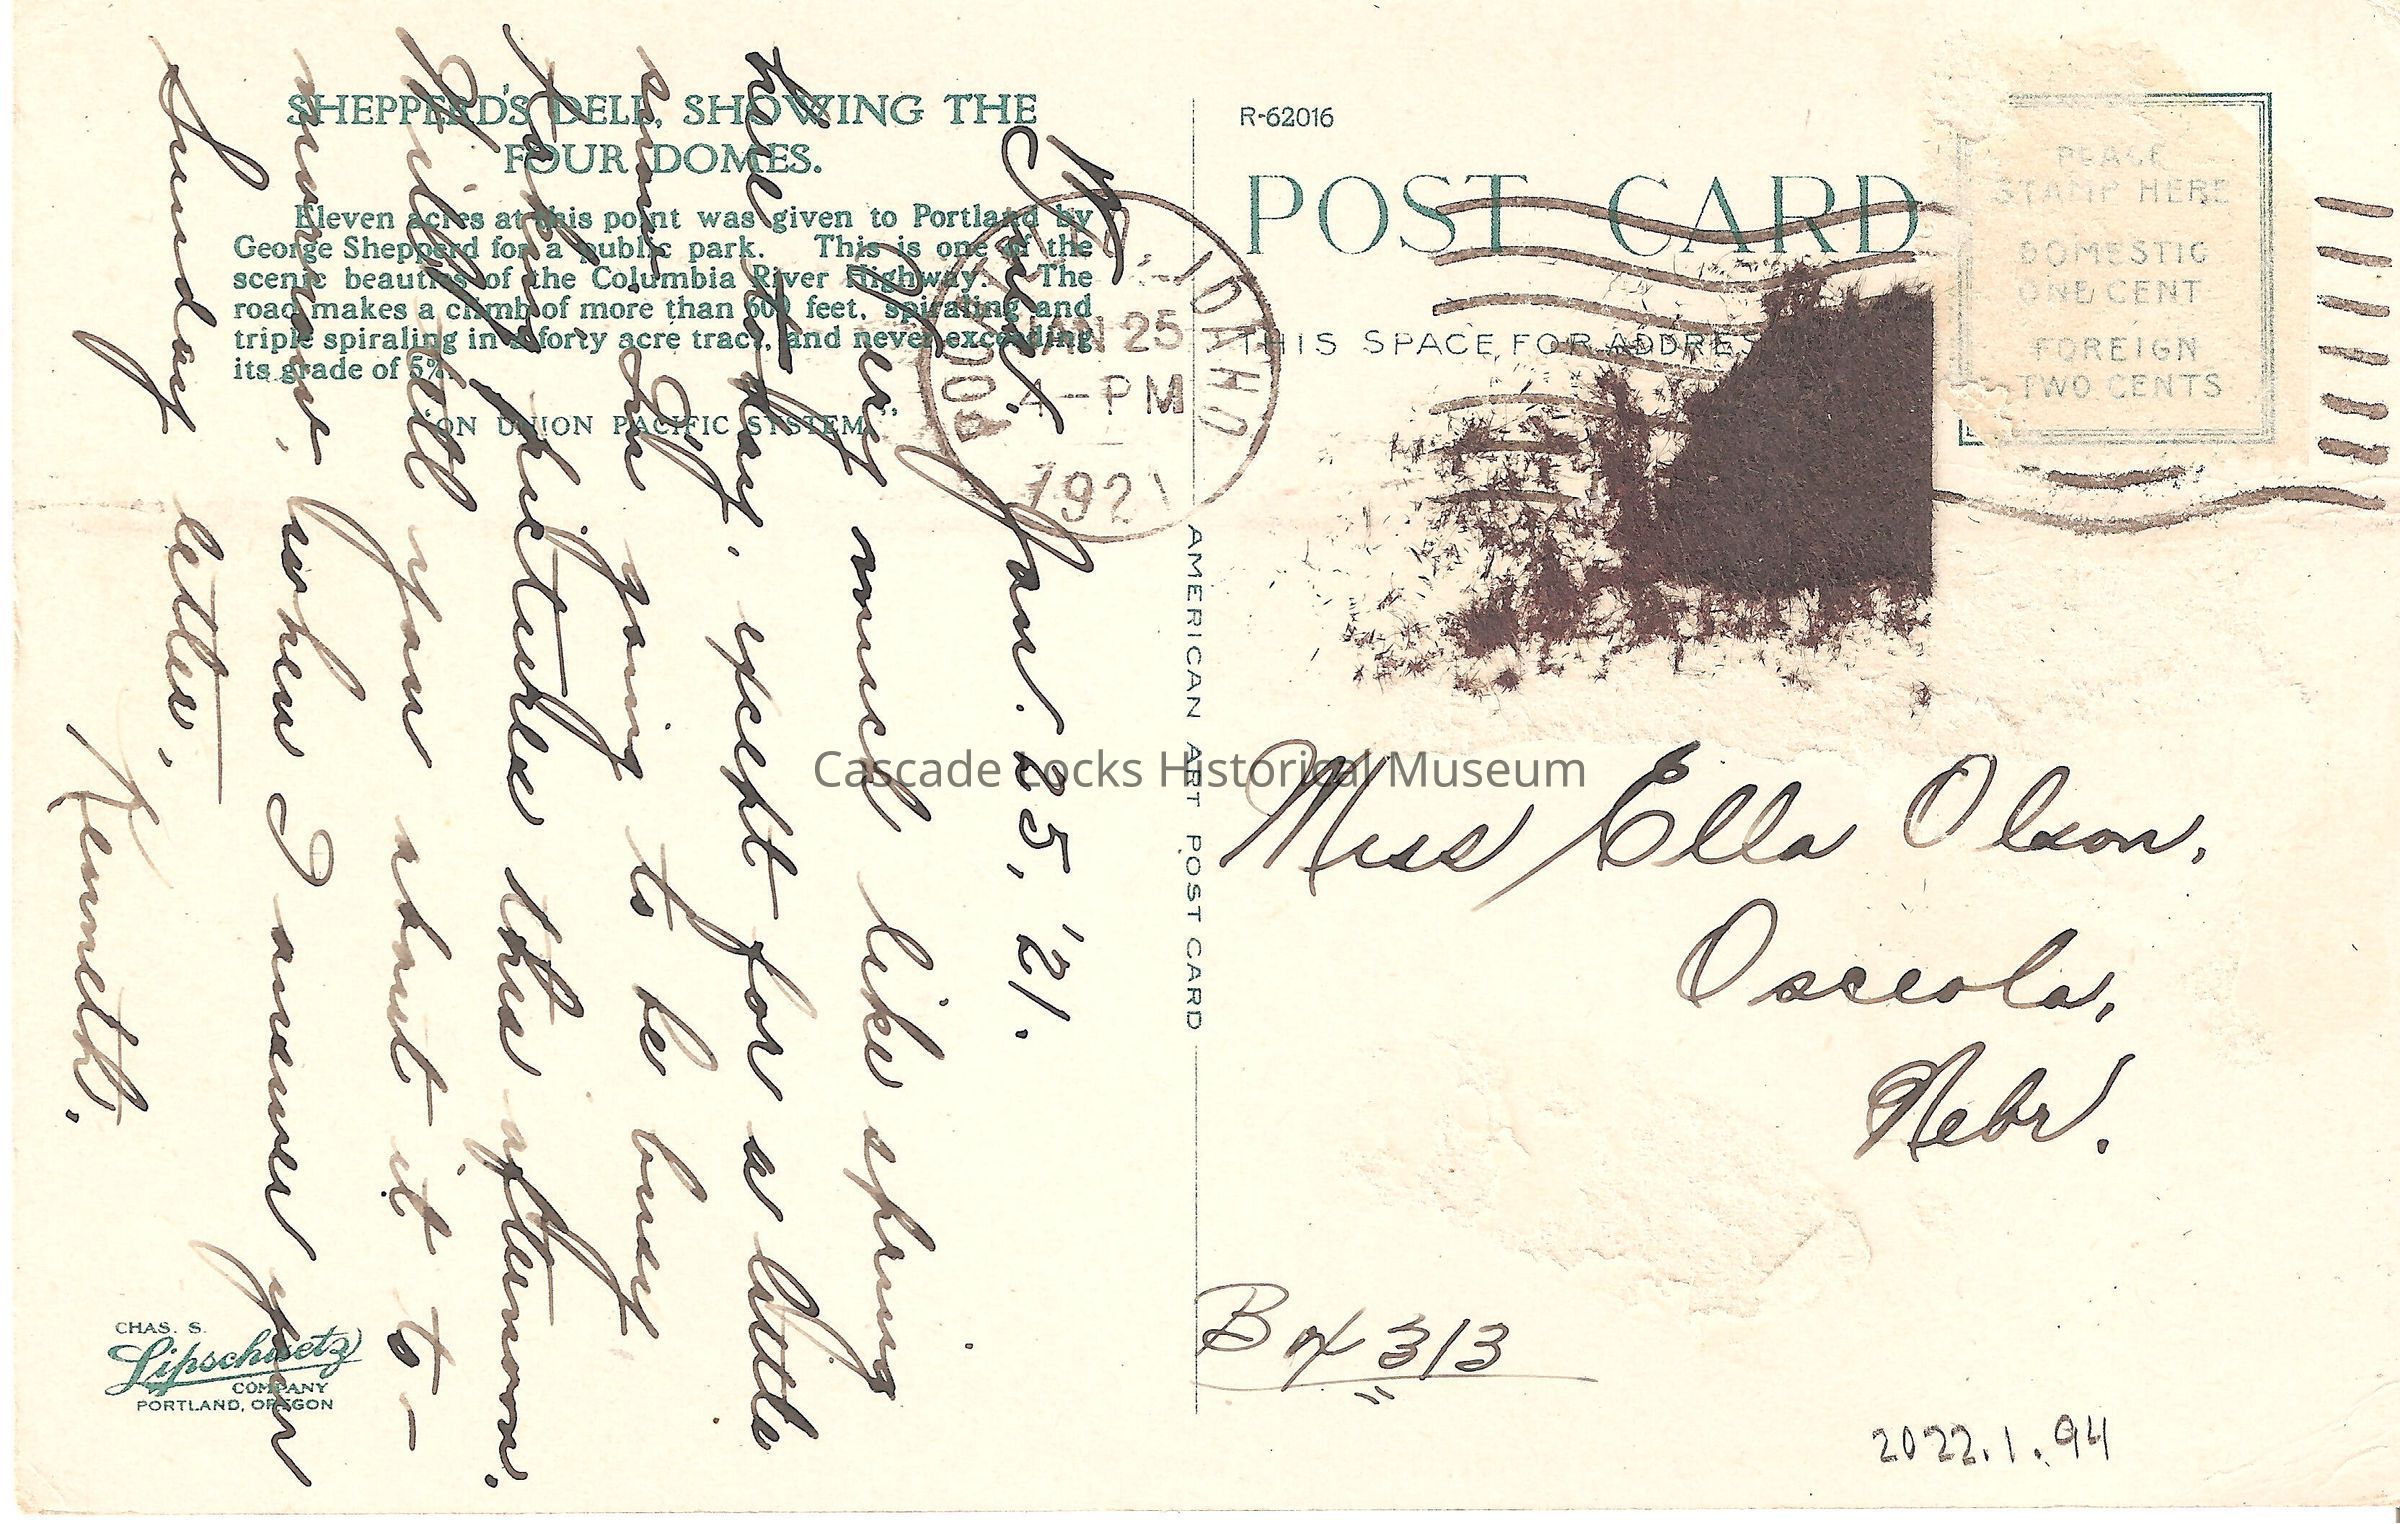 SHEPPERD'S DELL, SHOWING THE
FOUR DOMES.
Eleven acres at this point was given to Portland by
George Shepperd for a public park. This is one of the
scenic beauties of the Columbia River Highway. The
road makes a climb of more than 600 feet, spiraling and
triple spiraling in a forty acre tract, and never exceeding
its grade of 5%.
"ON UNION PACIFIC SYSTEM"
Jan. 25, '21.
Very much like spring
here to-day, except for a little
snow. Am going to be busy
taking pictures this afternoon.
Will tell you about it to-
morrow, when I answer your
Sunday letter.
Kenneth.
CHAS. S.
Lipschuetz
COMPANY
PORTLAND, OREGON
IDAHO
JAN 25
4-PM
1921
AMERICAN ART POST CARD
R-62016
POST CARD
THIS SPACE FOR ADDRESS
PLACE
STAMP HERE
DOMESTIC
ONE CENT
FOREIGN
TWO CENTS
Cascade Locks Historical Museum
Miss Ella Olson,
Osceola,
Nebr.
Box 313
2022.1.94